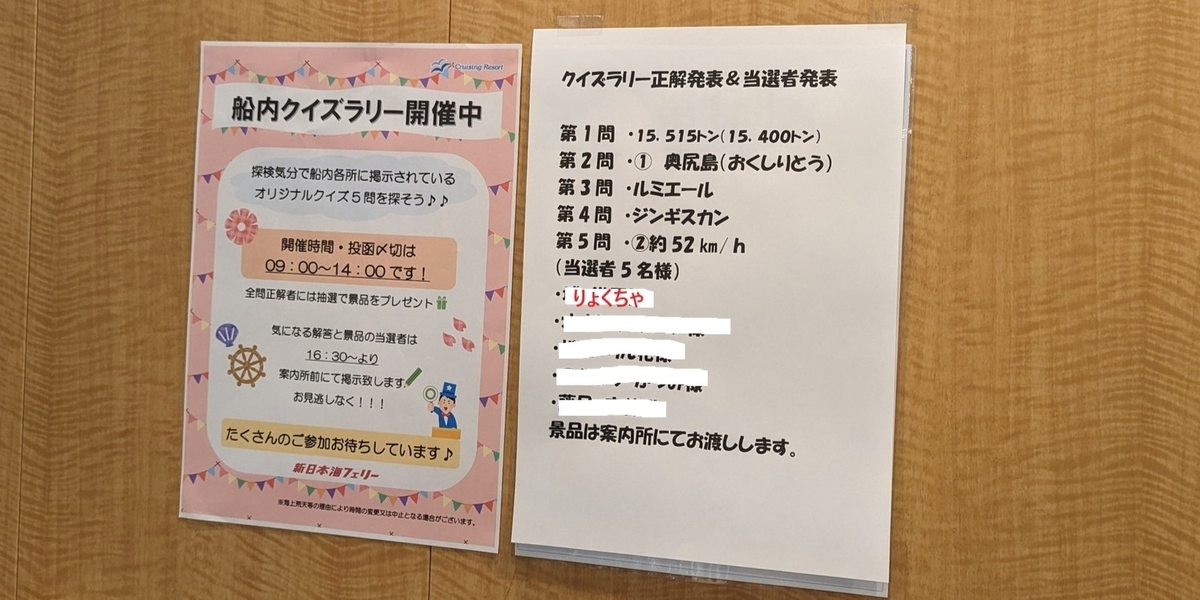 Cruising Resort
船内クイズラリー開催中
探検気分で船内各所に掲示されている
オリジナルクイズ5問を探そう♪♪
開催時間・投函〆切は
09：00～14：00です！
全問正解者には抽選で景品をプレゼント
気になる解答と景品の当選者は
16：30～より
案内所前にて掲示致します
お見逃しなく！！！
たくさんのご参加お待ちしています♪
新日本海フェリー
※海上荒天等の理由により時間の変更又は中止となる場合がございます。
クイズラリー正解発表＆当選者発表
第1問 ・15. 515トン（15. 400トン）
第2問 ・① 奥尻島（おくしりとう）
第3問 ・ルミエール
第4問 ・ジンギスカン
第5問 ・②約52㎞/h
（当選者5名様）
・りょくちゃ
景品は案内所にてお渡しします。